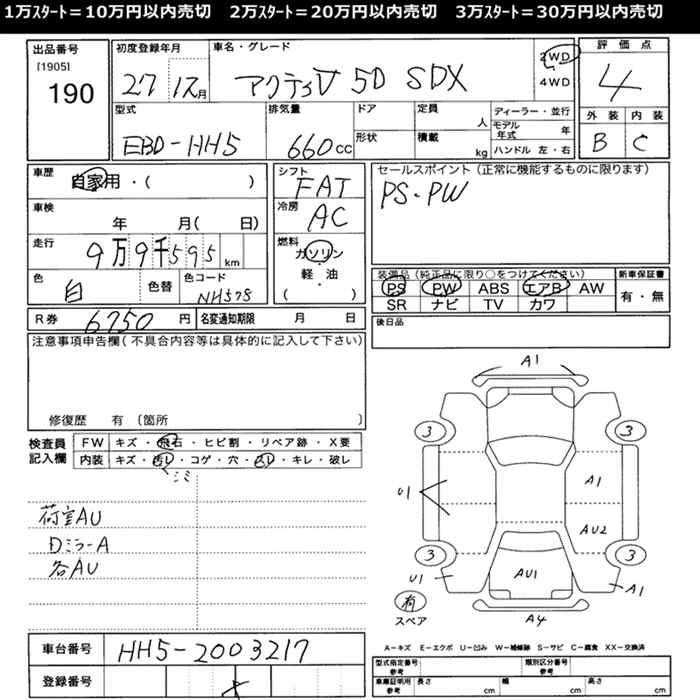 1万ｽﾀｰﾄ＝10万円以内売切　2万ｽﾀｰﾄ＝20万円以内売切　3万ｽﾀｰﾄ＝30万円以内売切
出品番号
[1905]
190
初度登録年月
27 12月
車名・グレード
アクティV 5D SDX
2WD
4WD
評価点
4
外装 内装
B C
型式
EBD-HH5
排気量
660cc
ドア
形状
定員 人
積載 kg
ディーラー・並行
モデル年式 年
ハンドル 左・右
車歴
自家用・( )
車検
年 月( 日)
走行
9万9千595km
色
白
色替
色コード
NH578
シフト
FAT
冷房
AC
燃料
ガソリン・
軽・油
( )
セールスポイント(正常に機能するものに限ります)
PS・PW
装備品(純正品に限り○をつけてください)
PS PW ABS エアB AW
SR ナビ TV カワ
新車保証書
有・無
R券 6750円
名変通知期限 月 日
後日品
注意事項申告欄(不具合内容等は具体的に記入して下さい)
修復歴 有 〔箇所 〕
検査員
記入欄
FW キズ・飛石・ヒビ割・リペア跡・X要
内装 キズ・汚レ・コゲ・穴・スレ・キレ・破レ
シミ
荷室AU
Dミラー A
各AU
A1
3 3
U1
A1
AU2
3 3
U1
AU1
A1
有
スペア
A4
A―キズ E―エクボ U―凹み W―補修跡 S―サビ C―腐食 XX―交換済
車台番号
HH5-2003217
登録番号
型式指定番号
参考
類別区分番号
参考
車庫証明用
参考
長さ cm
幅 cm
高さ cm